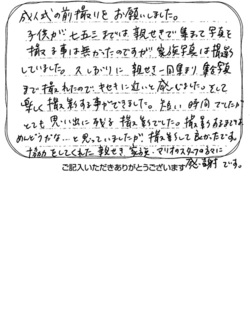 成人式の前撮りをお願いしました。
子供が七五三までは親せきで集まって写真を
撮る事は無かったのですが家族写真は撮影
していました。久しぶりに親せき一同集まり集合写真
まで撮れたので、キセキに近いと感じました。そして
楽しく撮影する事ができました。短い時間でしたが
とても思い出に残る撮影でした。撮影するまでは
めんどうかな…と思っていましたが撮影して良かったです。
協力をしてくれた親せき、家族、マリオのスタッフの方々に
感謝です。
ご記入いただきありがとうございます